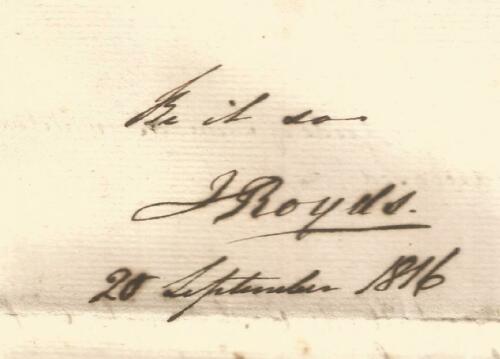 Be it so
J Royds.
20 September 1816